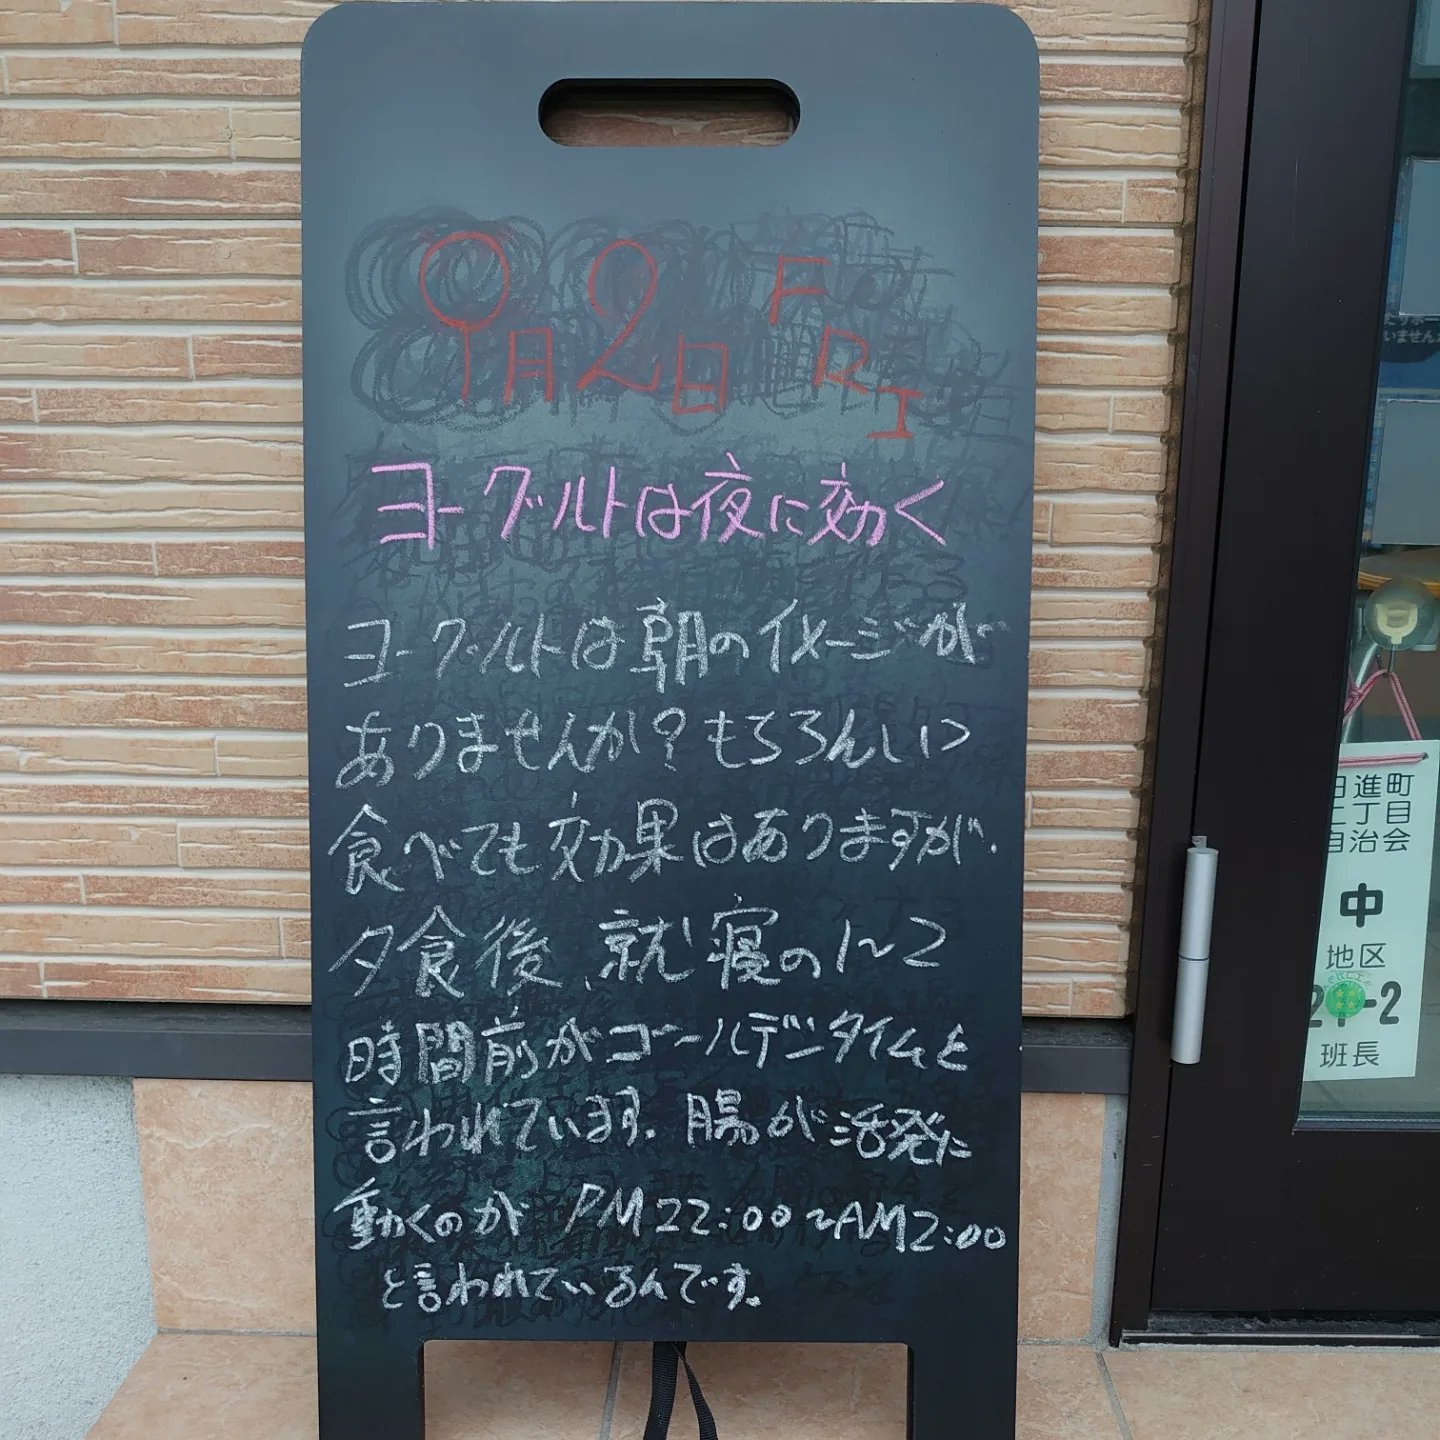 9月2日 FRI
ヨーグルトは夜に効く
ヨーグルトは朝のイメージが
ありませんか?もちろんいつ
食べても効果はありますが、
夕食後、就寝の1~2
時間前がゴールデンタイムと
言われています。腸が活発に
動くのが PM22:00~AM2:00
と言われているんです。
日進町
二丁目
自治会
中
地区
-2
班長